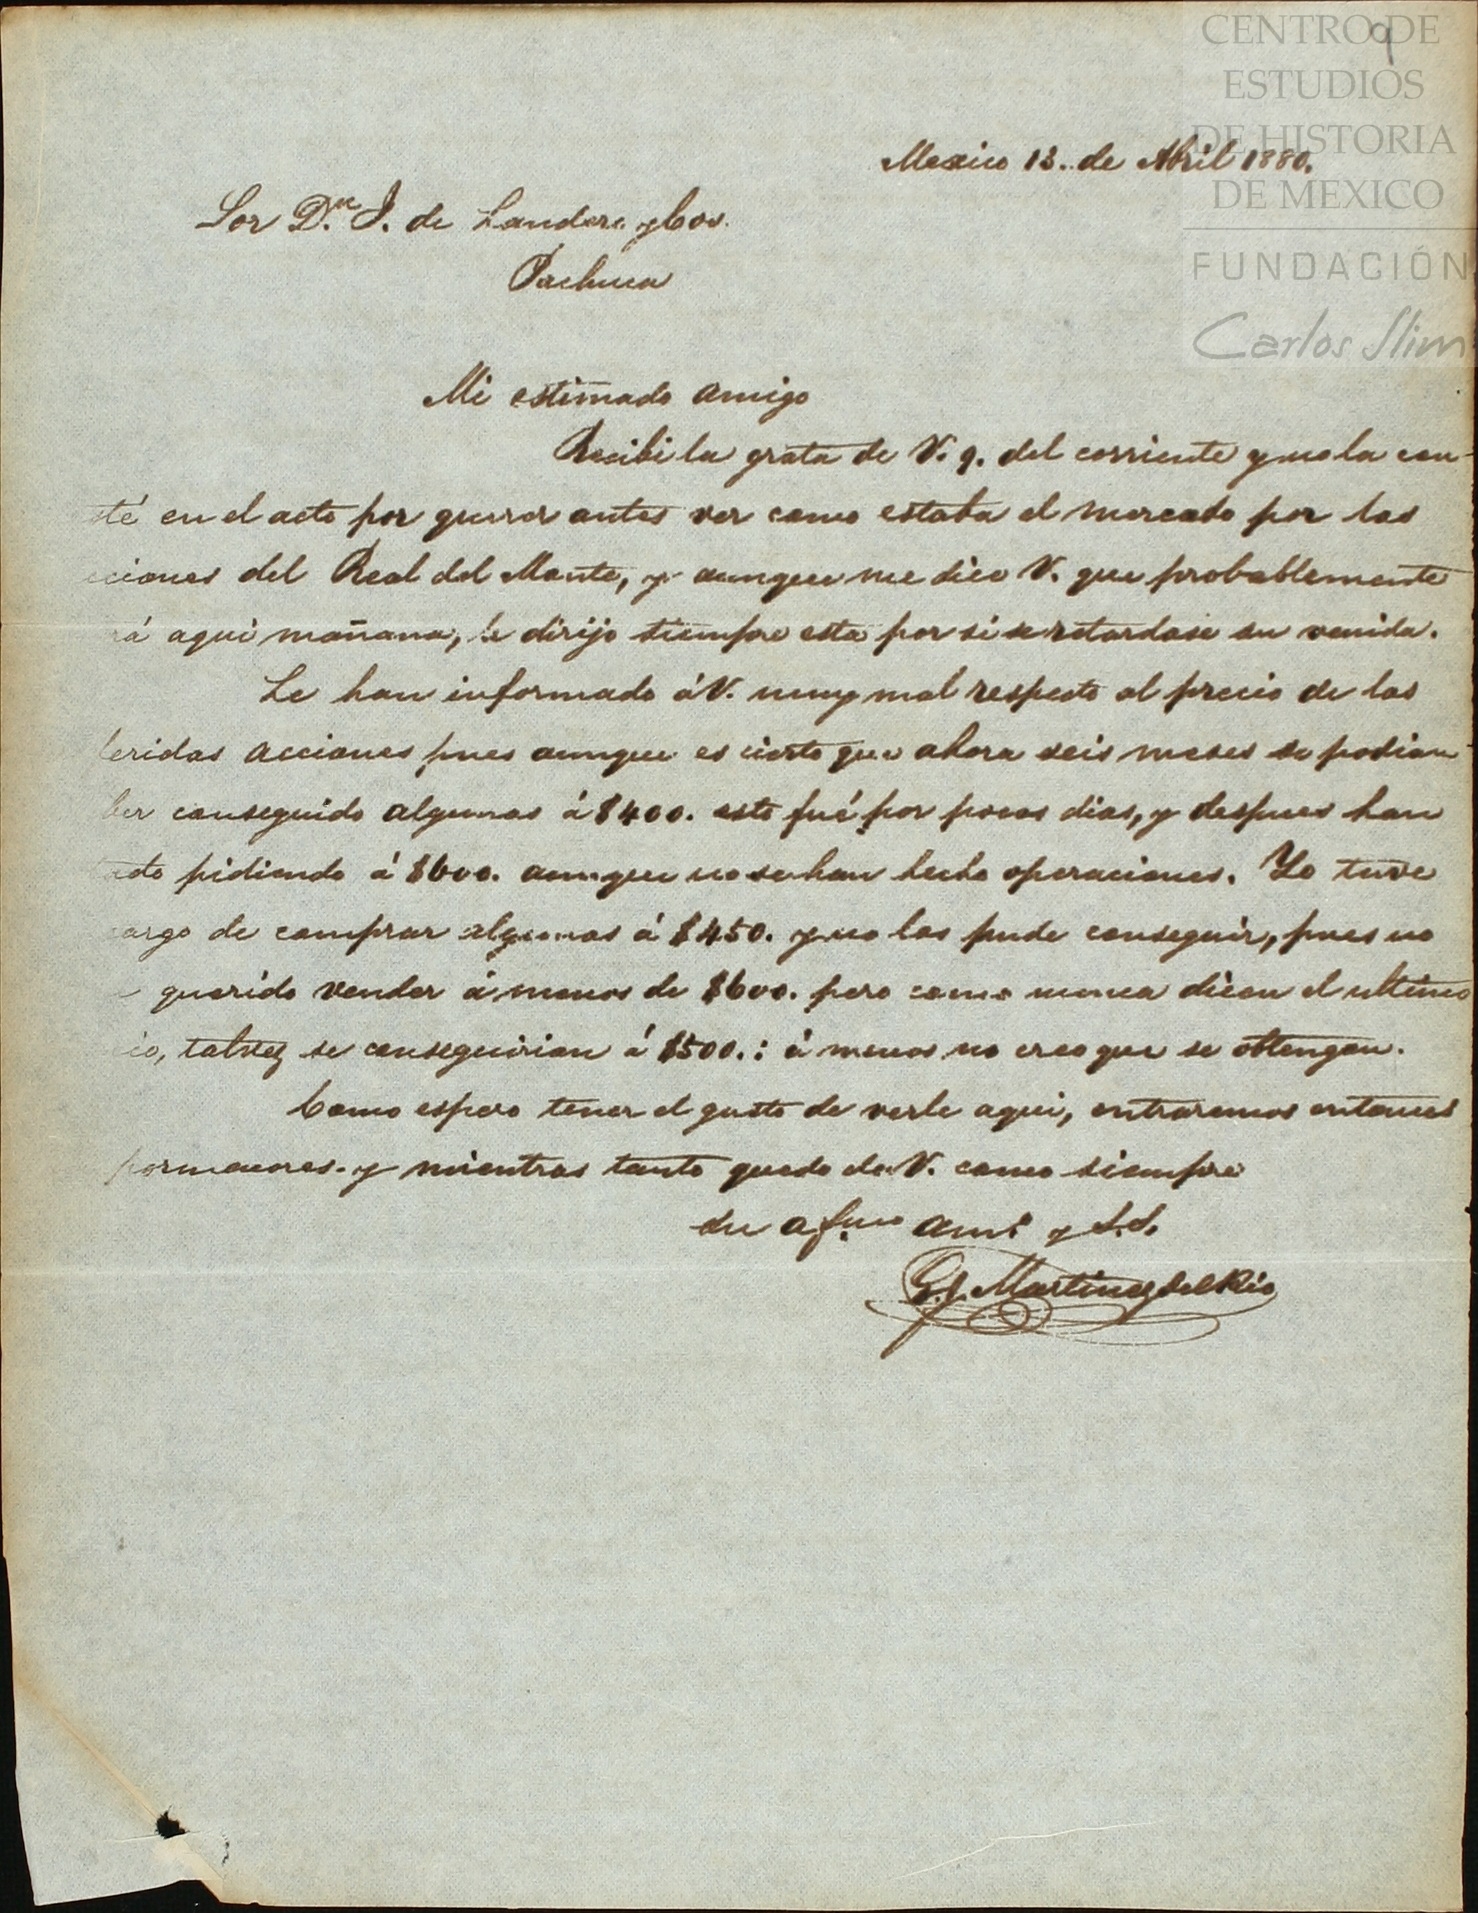 CENTRO DE
ESTUDIOS
DE HISTORIA
DE MEXICO
FUNDACIÓN
Carlos Slim
9
Mexico 13. de Abril 1880.
Sor D.n J. de Landero y Cos.
Pachuca
Mi estimado amigo
Recibi la grata de V. 9. del corriente y no la con-
té en el acto por querer antes ver como estaba el mercado por las
cciones del Real del Monte, y aunque me dice V. que probablemente
rá aqui mañana, le dirijo siempre esta por si se retardase su venida.
Le han informado á V. muy mal respecto al precio de las
feridas acciones pues aunque es cierto que ahora seis meses se podian
ber conseguido algunas á $400. esto fué por pocos dias, y despues han
ado pidiendo á $600. aunque no se han hecho operaciones. Yo tuve
cargo de comprar algunas á $450. y no las pude conseguir, pues no
querido vender á menos de $600. pero como nunca dicen el ultimo
cio, talvez se conseguirian á $500.: á menos no creo que se obtengan.
Como espero tener el gusto de verle aqui, entraremos entonces
pormenores. y mientras tanto quedo de V. como siempre
su afmo amo y S.S.
Martinez del Rio